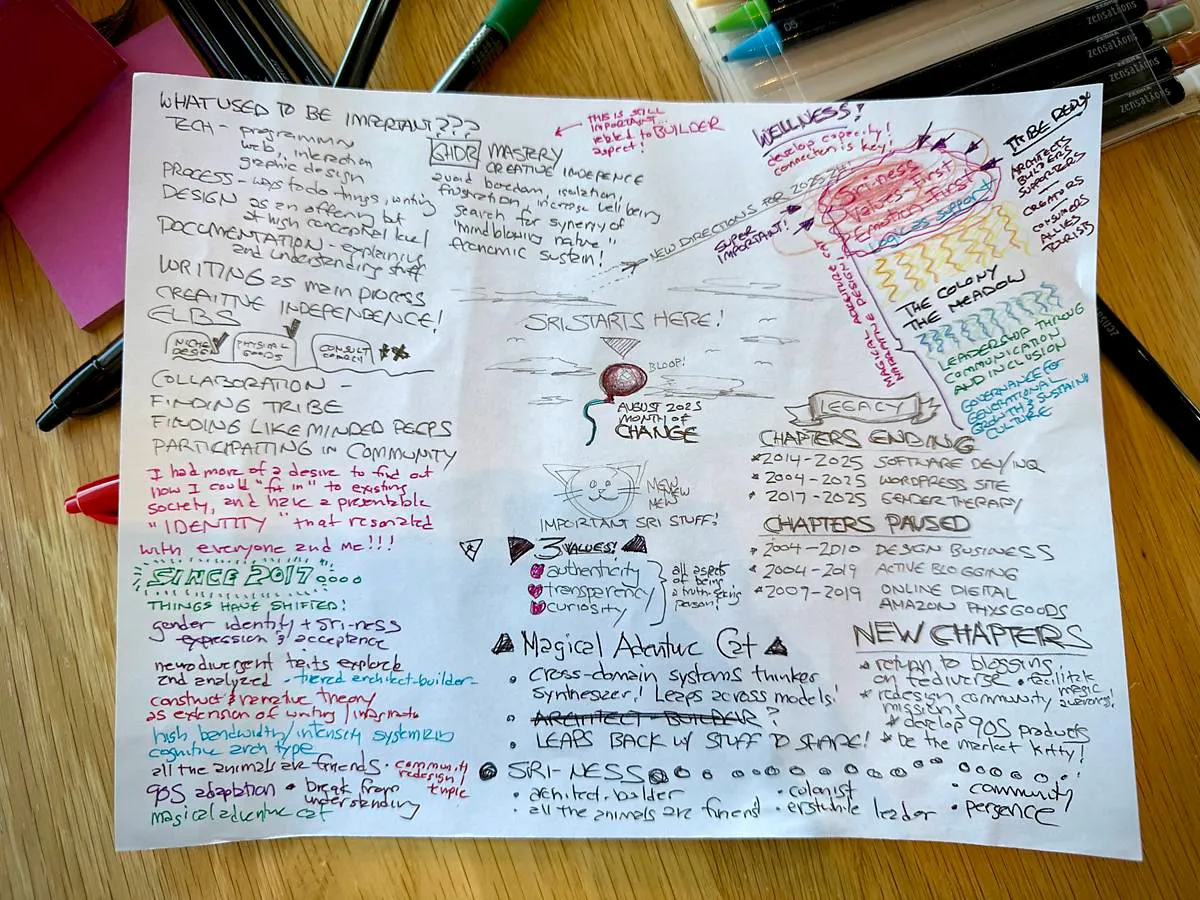 WHAT USED TO BE IMPORTANT???
TECH - programmin
web, interaction
graphic design
PROCESS - ways to do things, writing
DESIGN as an offering but
at high conceptual level
DOCUMENTATION - explaining
and understanding stuff
WRITING as main process
CREAITIVE INDEPENDENCE!
ELBS
NICHE
DESIGN
PHYSICAL
GOODS
CONSULT
COLLABORATION -
FINDING TRIBE
FINDING LIKE MINDED PEEPS
PARTICIPATING IN COMMUNITY
I had more of a desire to find out
how I could "fit in" to existing
society, and have a presentable
"IDENTITY" that resonated
with everyone and me!!!
SINCE 2017
THINGS HAVE SHIFTED!
gender identity + Sri-ness
expression & acceptance
neurodivergent traits explored
and analyzed - tiered architect-builder-
construct & narrative theory
as extension of writing /
high bandwidth/intensity system
cognitive archtype
all the animals are friends · community
redesign!
temple
90S adaptation · break from
understanding
magical adventure cat
GHDR MASTERY
CREATIVE INDEPENCE
avoid boredom, isolation,
frustration, increase well being
search for synergy of
"mindblowing native"
economic sustain!
THIS IS STILL
IMPORTANT...
related to BUILDER
aspect!
NEW DIRECTIONS FOR 2025-26!
SUPER
IMPORTANT!
WELLNESS!
develop capacity!
connection is key!
Sri-ness
Values First
Emotion First
Logic as support
TRIBE REDUX
ARCHITECTS
BUILDERS
SUPPORTERS
CREATORS
CONSUMERS
ALLIES
TOURISTS
THE COLONY
THE MEADOW
LEADERSHIP THROUG
COMMUNICATION
AND INCLUSION
GOVERNANCE FOR
GENERATIONAL
GROWTH & SUSTAINING
CULTURE
SRI STARTS HERE!
BLOOP!
AUGUST 2025
MONTH OF
CHANGE
MEW
MEW
MEW
IMPORTANT SRI STUFF!
3 VALUES!
authenticity
transparency
curiosity
all aspects
of being
a truth-seeking
person!
LEGACY
CHAPTERS ENDING
*2014-2025 SOFTWARE DEV/INQ
*2004-2025 WORDPRESS SITE
*2017-2025 GENDER THERAPY
CHAPTERS PAUSED
* 2004-2010 DESIGN BUSINESS
* 2004-2019 ACTIVE BLOGGING
* 2007-2019 ONLINE DIGITAL
AMAZON PHYS GOODS
NEW CHAPTERS
* return to blogging
on tediverse
• facilitate
magic
* redesign community
missions
* develop 90S products
* be the market kitty!
Magical Adentuc Cat
• cross-domain systems thinker
synthesizer! Leaps across models!
• ARCHITECT-BUILDER ?
• LEAPS BACK W/ STUFF TO SHARE!
SRI-NESS
• architect-builder
• all the animals are friend
• colonist
• erstwhile leader
• community
• persence
zensations
zensations
zensations
zensations